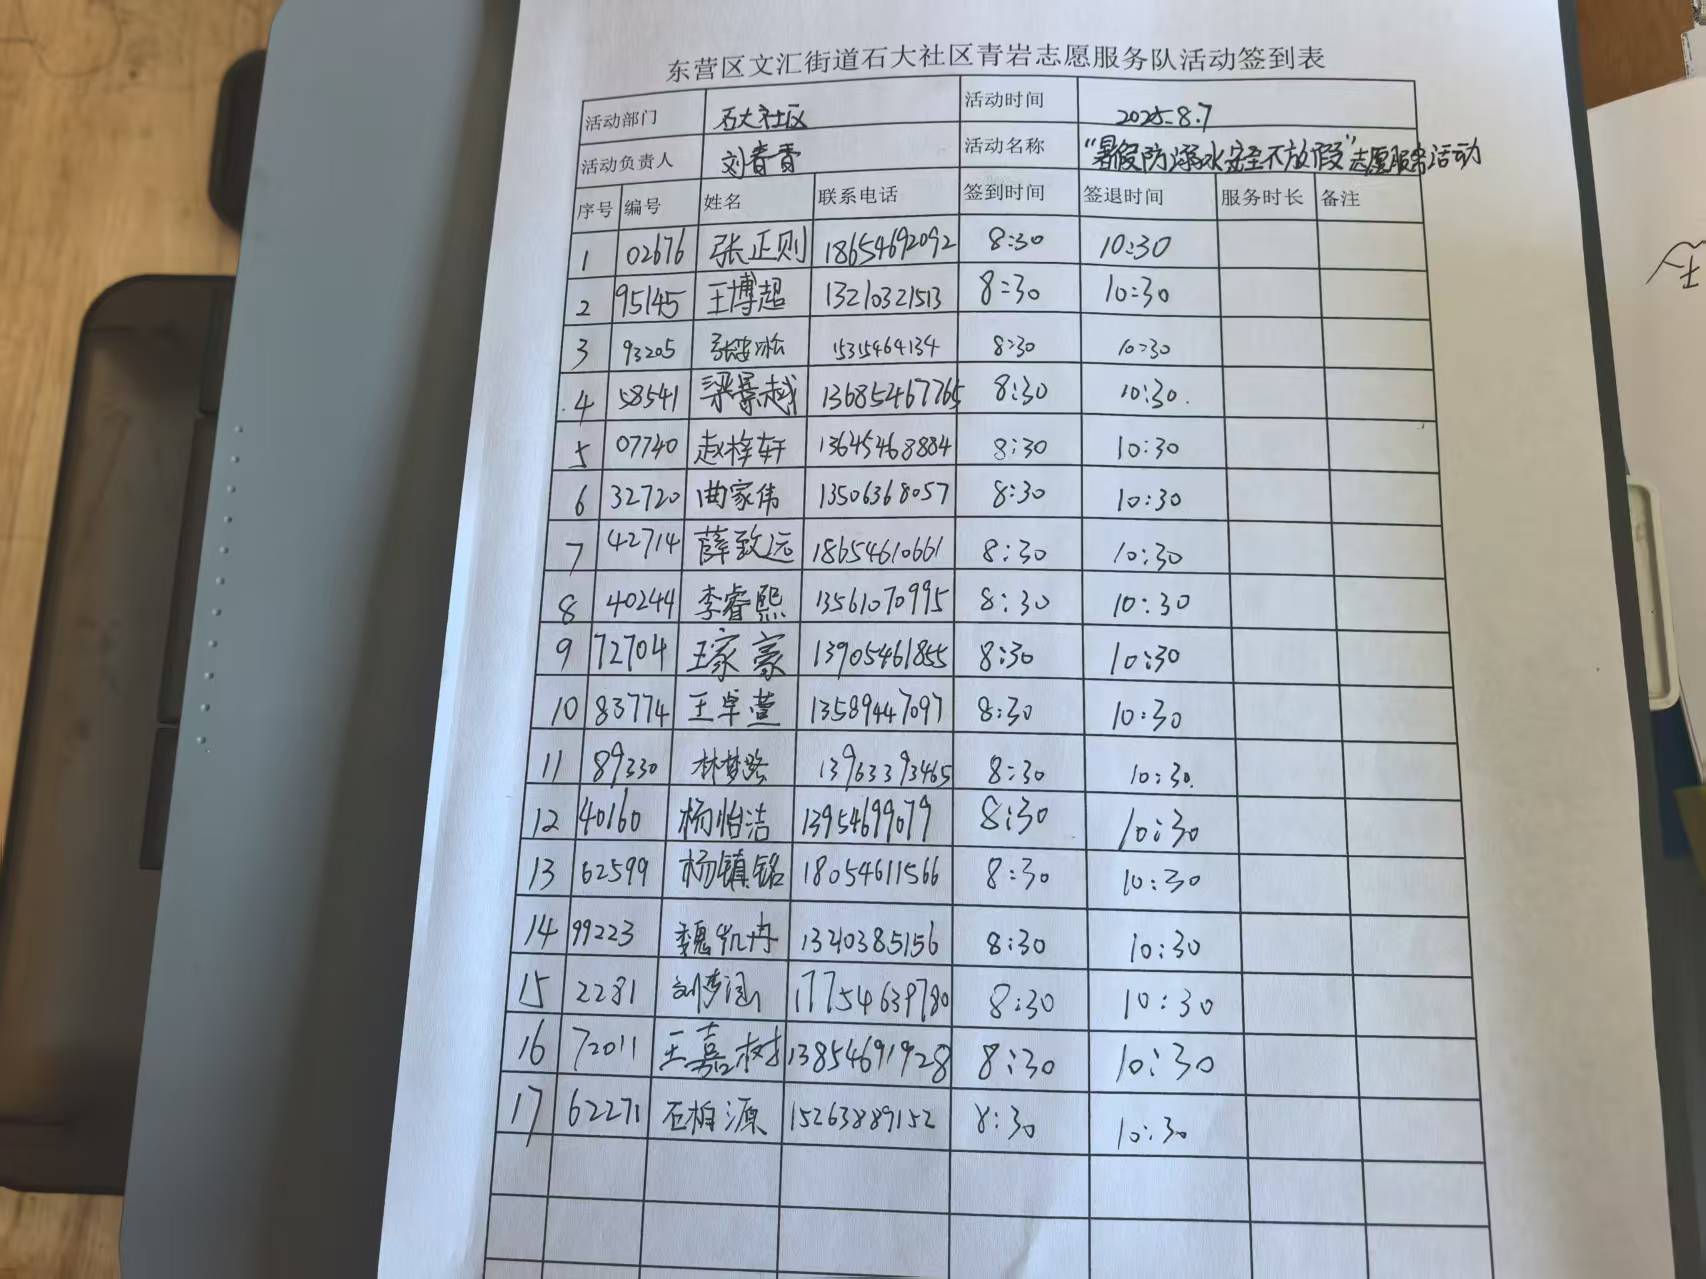 东营区文汇街道石大社区青岩志愿服务队活动签到表
活动部门 石大社区 活动时间 2025.8.7
活动负责人 刘春香 活动名称 “暑假防溺水安全不放假”志愿服务活动
序号 编号 姓名 联系电话 签到时间 签退时间 服务时长 备注
1 02676 张正则 18654692092 8:30 10:30
2 95145 王博超 13210321513 8:30 10:30
3 93205 15315464134 8:30 10:30
4 58541 梁景越 13685467765 8:30 10:30.
5 07740 赵梓轩 13645468884 8:30 10:30
6 32720 曲家伟 13506368057 8:30 10:30
7 42714 薛致远 18654610661 8:30 10:30
8 40244 李睿熙 13561070995 8:30 10:30
9 72704 王家豪 13905461855 8:30 10:30
10 83774 王卓萱 13589447097 8:30 10:30
11 89330 林梦璐 13963393465 8:30 10:30.
12 40160 杨怡洁 13954699079 8:30 10:30
13 62599 杨镇铭 18054611566 8:30 10:30
14 99223 魏凯冉 13210385156 8:30 10:30
15 2281 刘梦涵 17754639780 8:30 10:30
16 72011 王嘉树 13854691928 8:30 10:30
17 62271 石柏源 15263889152 8:30 10:30